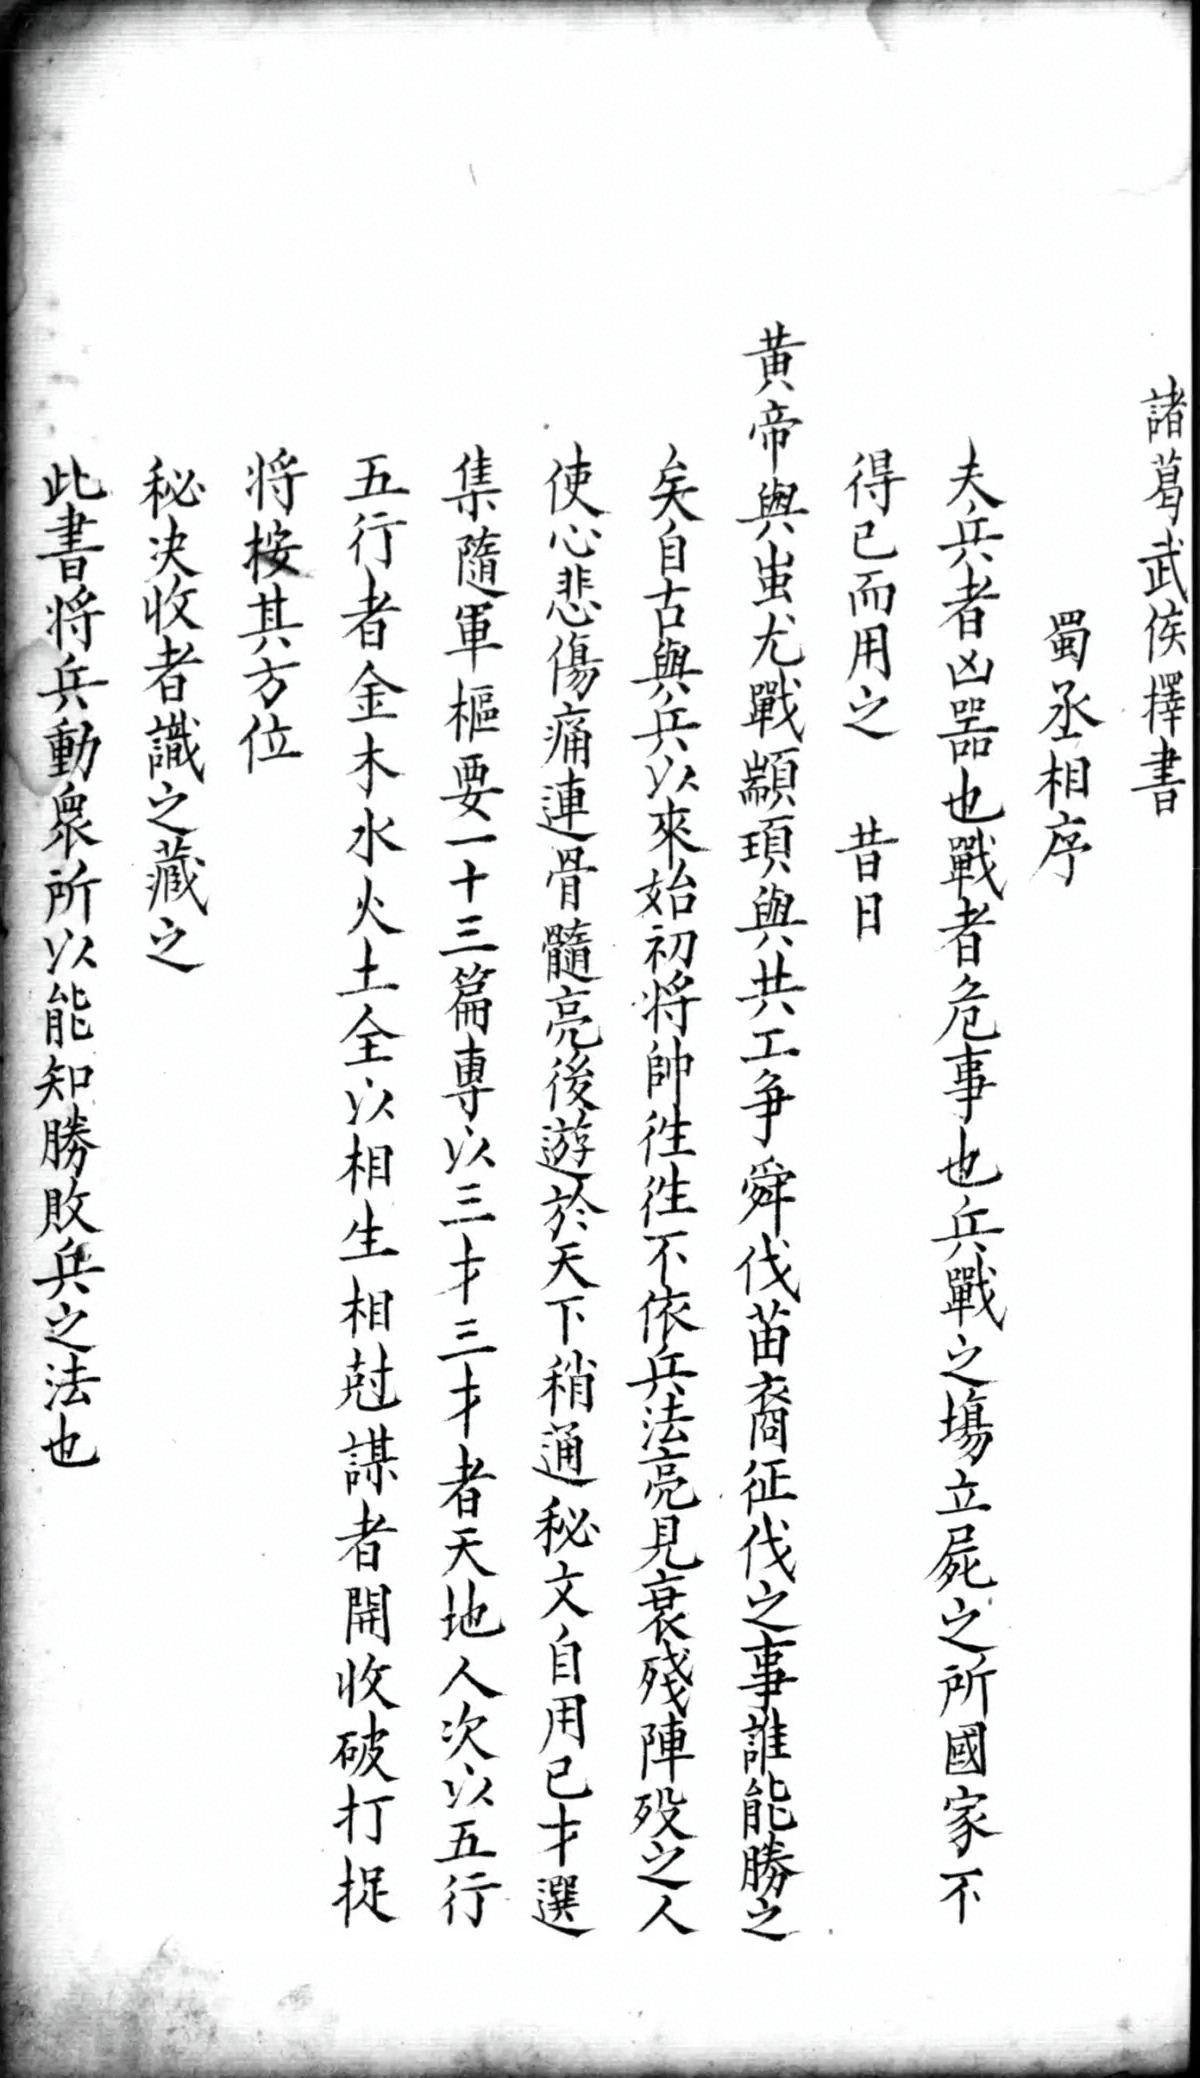 諸葛武侯擇書
蜀丞相序
夫兵者凶器也戰者危事也兵戰之塲立屍之所國家不
得已而用之　昔日
黃帝與蚩尤戰顓頊與共工争舜伐苗裔征伐之事誰能勝之
矣自古與兵以來始初將帥徃徃不依兵法亮見衰殘陣殁之人
使心悲傷痛連骨髓亮後遊於天下稍通秘文自用已才選
集隨軍樞要一十三篇專以三才三才者天地人次以五行
五行者金木水火土全以相生相尅謀者開收破打捉
將桉其方位
秘决收者識之藏之
此書將兵動衆所以能知勝敗兵之法也